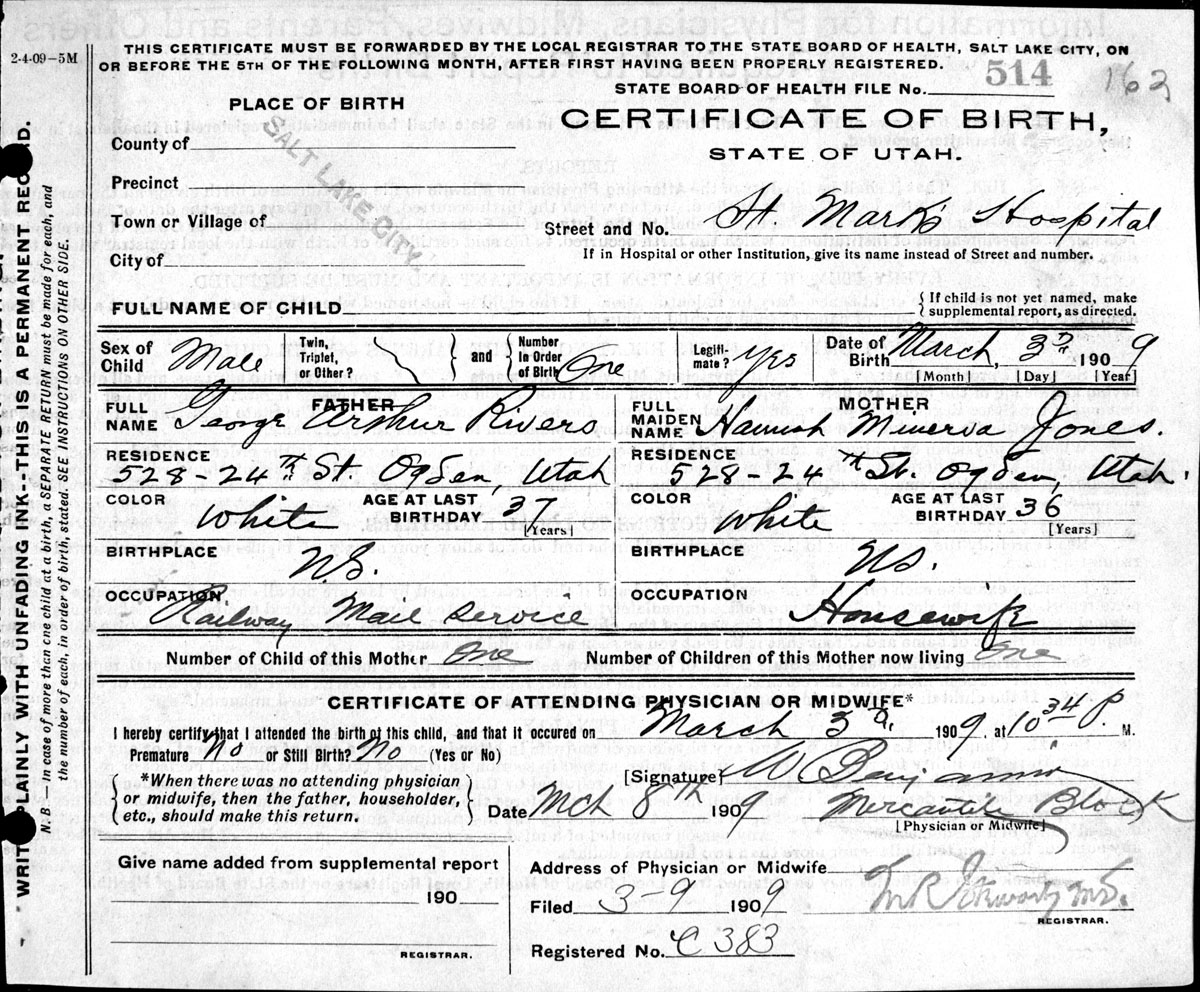 2-4-09-5M
THIS CERTIFICATE MUST BE FORWARDED BY THE LOCAL REGISTRAR TO THE STATE BOARD OF HEALTH, SALT LAKE CITY, ON
OR BEFORE THE 5TH OF THE FOLLOWING MONTH, AFTER FIRST HAVING BEEN PROPERLY REGISTERED.
STATE BOARD OF HEALTH FILE No. 514 162
PLACE OF BIRTH
CERTIFICATE OF BIRTH,
STATE OF UTAH.
County of
Precinct
SALT LAKE CITY.
Town or Village of
Street and No. St. Mark's Hospital
City of
If in Hospital or other Institution, give its name instead of Street and number.
FULL NAME OF CHILD
{If child is not yet named, make
supplemental report, as directed.
Sex of Child Male Twin, Triplet, or Other? } and { Number in Order of Birth One Legiti-mate? yes Date of Birth March 3rd 1909
[Month] [Day] [Year]
FATHER
FULL NAME George Arthur Rivers
MOTHER
FULL MAIDEN NAME Hannah Minerva Jones.
RESIDENCE
528-24th St. Ogden, Utah
RESIDENCE
528-24th St. Ogden, Utah.
COLOR White AGE AT LAST BIRTHDAY 37
[Years]
COLOR White AGE AT LAST BIRTHDAY 36
[Years]
BIRTHPLACE
BIRTHPLACE
OCCUPATION
Railway Mail Service
OCCUPATION
Housewife
Number of Child of this Mother One Number of Children of this Mother now living One
CERTIFICATE OF ATTENDING PHYSICIAN OR MIDWIFE*
I hereby certify that I attended the birth of this child, and that it occured on March 3rd, 1909. at 10 34 P. M.
Premature No or Still Birth? No (Yes or No)
{*When there was no attending physician
or midwife, then the father, householder,
etc., should make this return.}
[Signature] W Benjamin
Date Mch 8th 1909 Mercantile Block
[Physician or Midwife]
Give name added from supplemental report
190
REGISTRAR.
Address of Physician or Midwife
Filed 3-9 1909
REGISTRAR.
Registered No. C 383
WRITE PLAINLY WITH UNFADING INK--THIS IS A PERMANENT RECORD.
N. B.—In case of more than one child at a birth, a SEPARATE RETURN must be made for each, and
the number of each, in order of birth, stated. SEE INSTRUCTIONS ON OTHER SIDE.